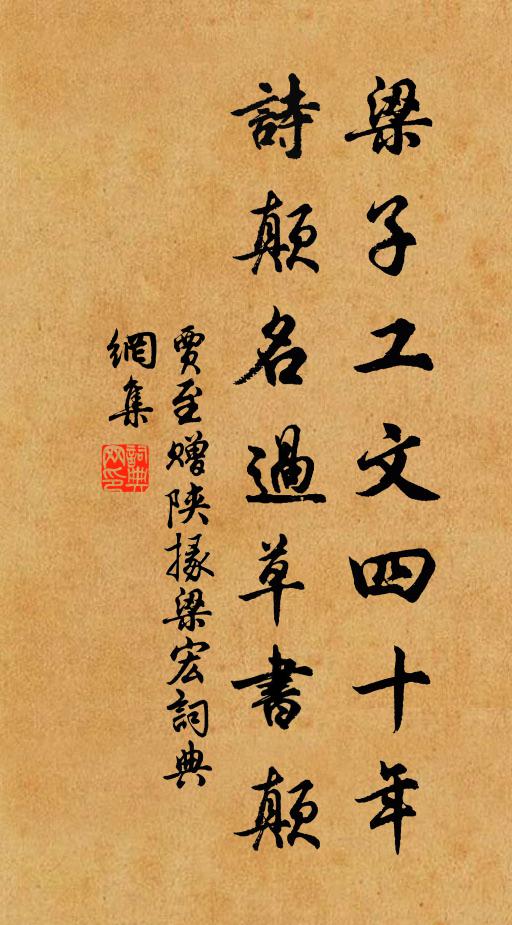 梁子工文四十年
詩顛名過草書顛
賈至贈陝掾梁宏詞典
網集
詞典
网印